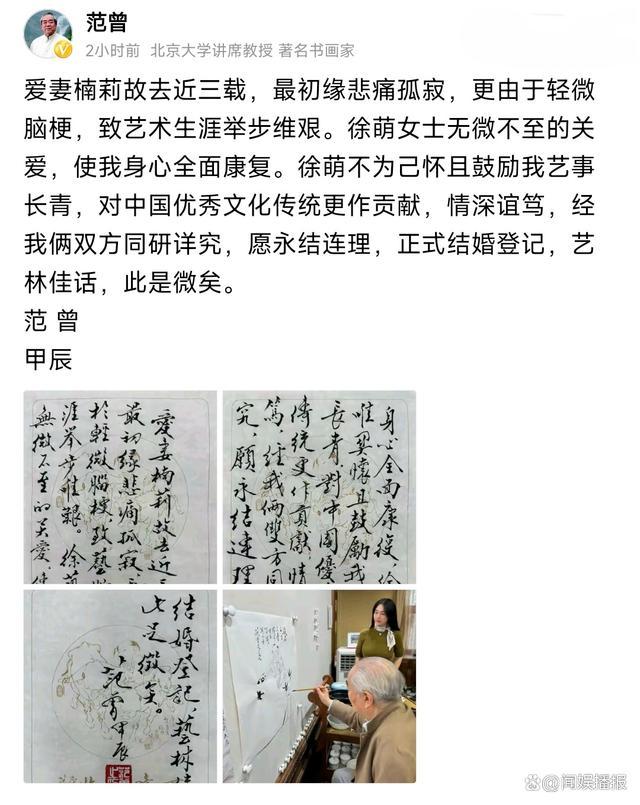 范曾
2小时前 北京大学讲席教授 著名书画家
爱妻楠莉故去近三载，最初缘悲痛孤寂，更由于轻微
脑梗，致艺术生涯举步维艰。徐萌女士无微不至的关
爱，使我身心全面康复。徐萌不为己怀且鼓励我艺事
长青，对中国优秀文化传统更作贡献，情深谊笃，经
我俩双方同研详究，愿永结连理，正式结婚登记，艺
林佳话，此是微矣。
范 曾
甲辰
愛妻楠莉故去近三
最初缘悲痛孤寂
於輕微腦梗，致藝
涯举步维艱。徐萌
無微不至的关愛，使
身心全面康復，徐
懷且鼓勵我
長青，對中國優
傳統更作貢獻，情
篤，經我俩雙方同
究，願永结連理
结婚登記，藝林佳
此是微矣。
范曾甲辰
闻娱播报